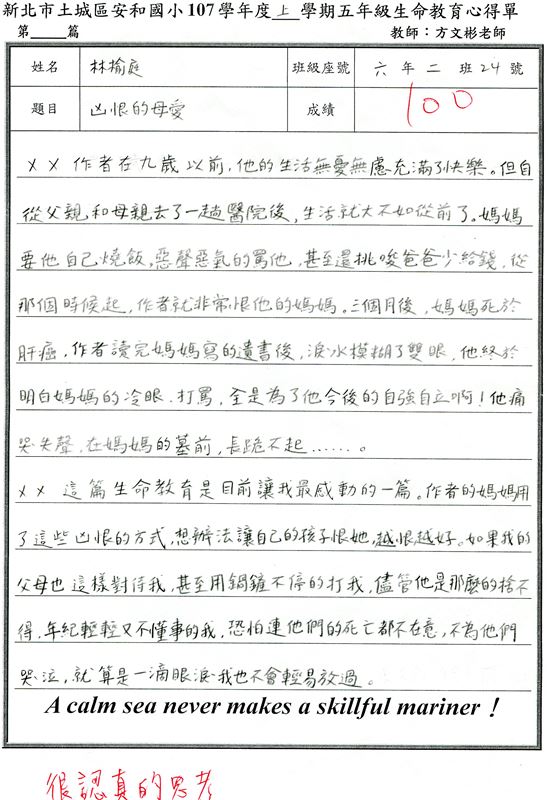 新北市土城區安和國小107學年度上學期五年級生命教育心得單
第____篇 教師：方文彬老師
姓名 林榆庭 班級座號 六年二班24號
題目 凶恨的母愛 成績 100
×× 作者在九歲以前，他的生活無憂無慮充滿了快樂。但自
從父親和母親去了一趟醫院後，生活就大不如從前了。媽媽
要他自己燒飯，惡聲惡氣的罵他，甚至還挑唆爸爸少給錢，從
那個時候起，作者就非常恨他的媽媽。三個月後，媽媽死於
肝癌，作者讀完媽媽寫的遺書後，淚水模糊了雙眼，他終於
明白媽媽的冷眼、打罵，全是為了他今後的自強自立啊！他痛
哭失聲，在媽媽的墓前，長跪不起……。
×× 這篇生命教育是目前讓我最感動的一篇。作者的媽媽用
了這些凶恨的方式，想辦法讓自己的孩子恨她，越恨越好。如果我的
父母也這樣對待我，甚至用鍋鏟不停的打我，儘管他是那麼的捨不
得，年紀輕輕又不懂事的我，恐怕連他們的死亡都不在意，不為他們
哭泣，就算是一滴眼淚我也不會輕易放過。
A calm sea never makes a skillful mariner！
很認真的思考